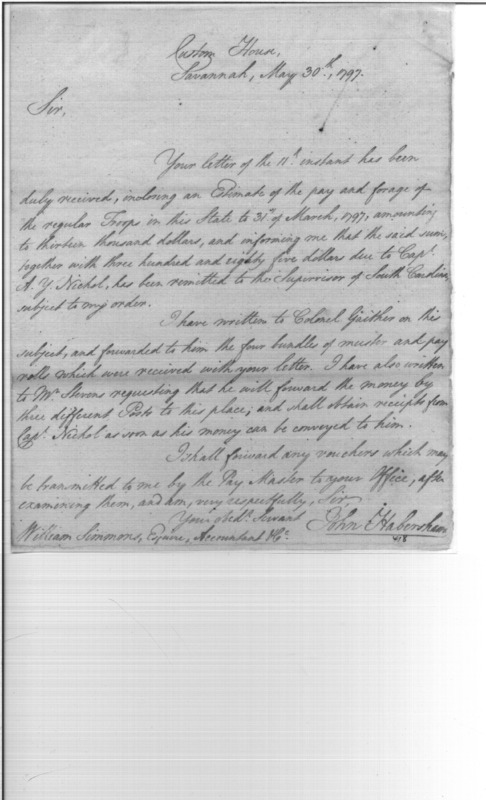 Custom House,
Savannah, May 30th, 1797.
Sir,
Your letter of the 11th instant has been
duly received, inclosing an Estimate of the pay and forage of
the regular Troops in this State to 31st of March, 1797, amounting
to thirteen thousand dollars, and informing me that the said sum,
together with three hundred and eighty five dollars due to Capt.
A. Y. Nichol, has been remitted to the Supervisor of South Carolina,
subject to my order.
I have written to Colonel Gaither on this
subject, and forwarded to him the four bundles of muster and pay
rolls which were received with your letter. I have also written
to Mr Stevens requesting that he will forward the money by
three different Posts to this place; and shall obtain receipts from
Capt. Nichol as soon as his money can be conveyed to him.
I shall forward any vouchers which may
be transmitted to me by the Pay Master to your Office, after
examining them, and am, very respectfully, Sir
Your obedt. Servant John Habersham
William Simmons, Esquire, Accountant &c.